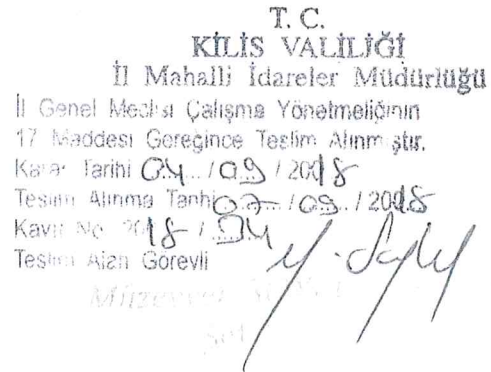 T. C.
KİLİS VALİLİĞİ
İl Mahalli İdareler Müdürlüğü
İl Genel Meclisi Çalışma Yönetmeliğinin
17 Maddesi Gereğince Teslim Alınmıştır.
Karar Tarihi 04 / 09 / 2018
Teslim Alınma Tarihi 07 / 09 / 2018
Kayıt No 2018 / 94
Teslim Alan Görevli
Müzeyyen
Şef